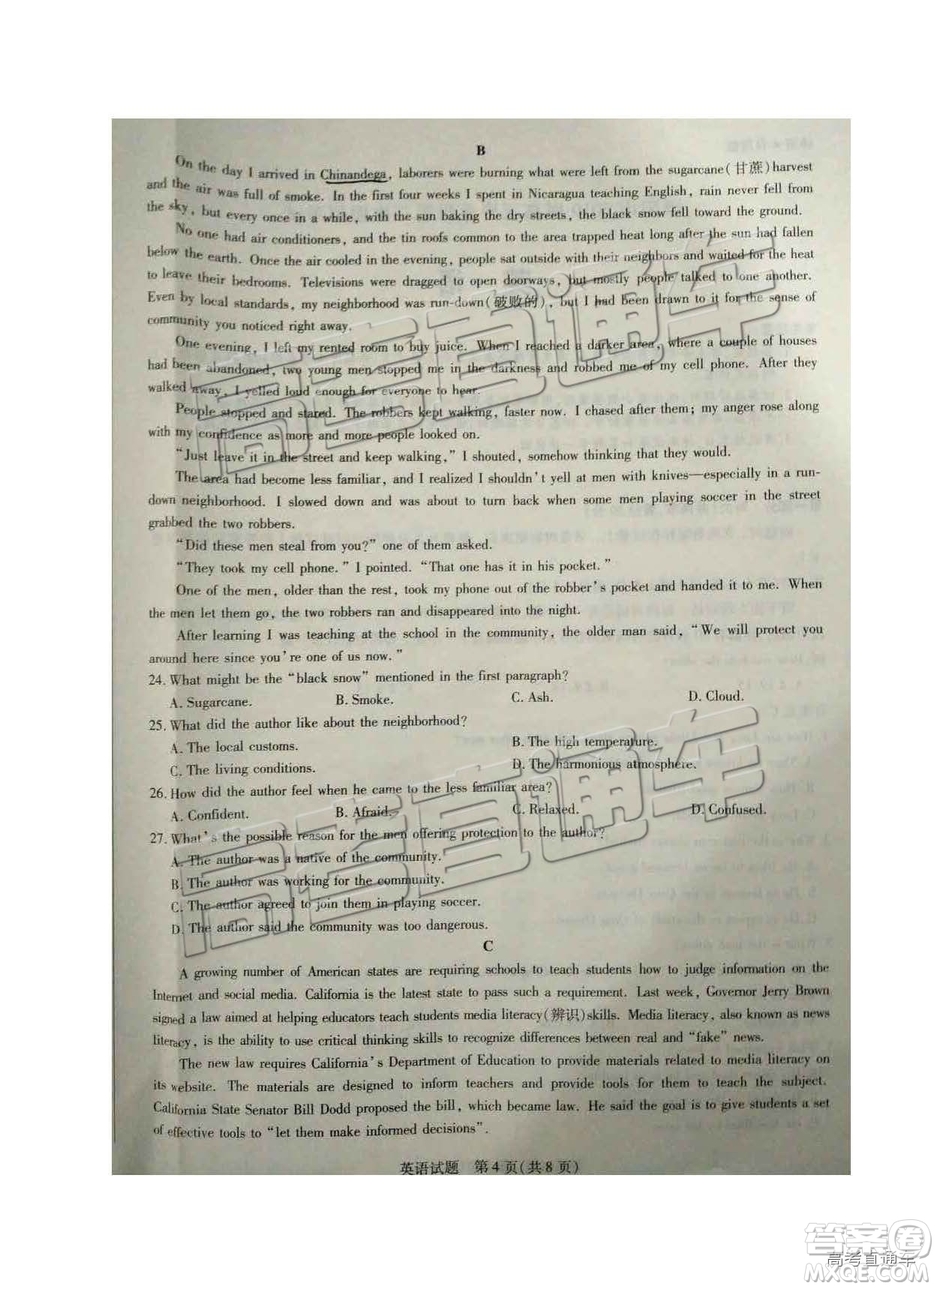 B
On the day I arrived in Chinandega, laborers were burning what were left from the sugarcane(甘蔗)harvest
and the air was full of smoke. In the first four weeks I spent in Nicaragua teaching English, rain never fell from
the sky, but every once in a while, with the sun baking the dry streets, the black snow fell toward the ground.
No one had air conditioners, and the tin roofs common to the area trapped heat long after the sun had fallen
below the earth. Once the air cooled in the evening, people sat outside with their neighbors and waited for the heat
to leave their bedrooms. Televisions were dragged to open doorways, but mostly people talked to one another.
Even by local standards, my neighborhood was run-down(破败的), but I had been drawn to it for the sense of
community you noticed right away.
One evening, I left my rented room to buy juice. When I reached a darker area, where a couple of houses
had been abandoned, two young men stopped me in the darkness and robbed me of my cell phone. After they
walked away, I yelled loud enough for everyone to hear.
People stopped and stared. The robbers kept walking, faster now. I chased after them; my anger rose along
with my confidence as more and more people looked on.
“Just leave it in the street and keep walking,” I shouted, somehow thinking that they would.
The area had become less familiar, and I realized I shouldn't yell at men with knives—especially in a run-
down neighborhood. I slowed down and was about to turn back when some men playing soccer in the street
grabbed the two robbers.
“Did these men steal from you?” one of them asked.
“They took my cell phone.” I pointed. “That one has it in his pocket.”
One of the men, older than the rest, took my phone out of the robber's pocket and handed it to me. When
the men let them go, the two robbers ran and disappeared into the night.
After learning I was teaching at the school in the community, the older man said, “We will protect you
around here since you're one of us now.”
24. What might be the “black snow” mentioned in the first paragraph?
A. Sugarcane. B. Smoke. C. Ash. D. Cloud.
25. What did the author like about the neighborhood?
A. The local customs. B. The high temperature.
C. The living conditions. D. The harmonious atmosphere.
26. How did the author feel when he came to the less familiar area?
A. Confident. B. Afraid. C. Relaxed. D. Confused.
27. What's the possible reason for the men offering protection to the author?
A. The author was a native of the community.
B. The author was working for the community.
C. The author agreed to join them in playing soccer.
D. The author said the community was too dangerous.
C
A growing number of American states are requiring schools to teach students how to judge information on the
Internet and social media. California is the latest state to pass such a requirement. Last week, Governor Jerry Brown
signed a law aimed at helping educators teach students media literacy(辨识)skills. Media literacy, also known as news
literacy, involves the ability to use critical thinking skills to recognize differences between real and “fake” news.
The new law requires California's Department of Education to provide materials related to media literacy on
its website. The materials are designed to inform teachers and provide tools for them to teach the subject.
California State Senator Bill Dodd proposed the bill, which became law. He said the goal is to give students a set
of effective tools to “let them make informed decisions”.
英语试题 第4页(共8页)
高考直通车
高考直通车
答案圈
高考直通车
MXQE.COM